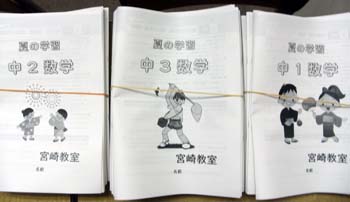 夏の学習
中2数学
宮崎教室
名前
夏の学習
中3数学
宮崎教室
名前
夏の学習
中1数学
宮崎教室
名前